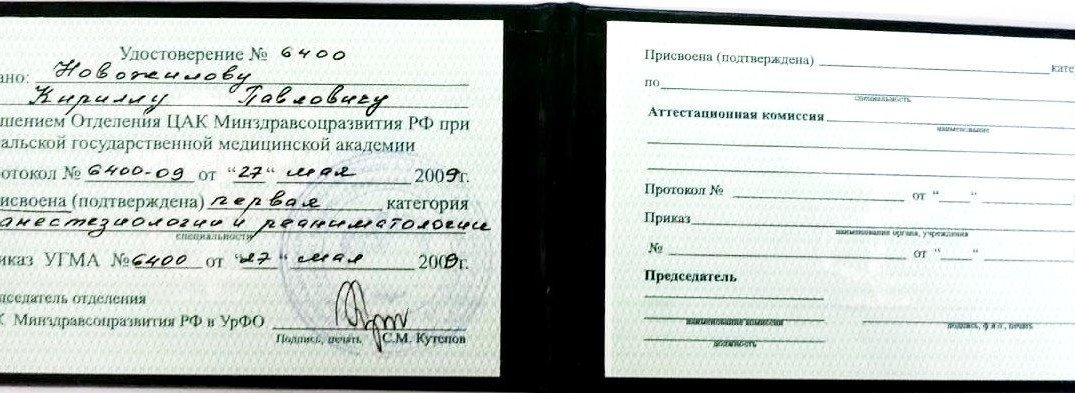 Удостоверение № 6400
ано: Новожилову
Кириллу Павловичу
шением Отделения ЦАК Минздравсоцразвития РФ при
альской государственной медицинской академии
отокол № 6400-09 от "27" мая 2009г.
исвоена (подтверждена) первая категория
анестезиологии и реаниматологии
специальности
иказ УГМА №6400 от "27" мая 2009г.
дседатель отделения
К Минздравсоцразвития РФ в УрФО
Подпись, печать С.М. Кутепов
Присвоена (подтверждена) кате
по
специальность
Аттестационная комиссия
наименование
Протокол № от "__"
Приказ
наименование органа, учреждения
№ от "__"
Председатель
наименование комиссии
подпись, ф.и.о., печать
должность